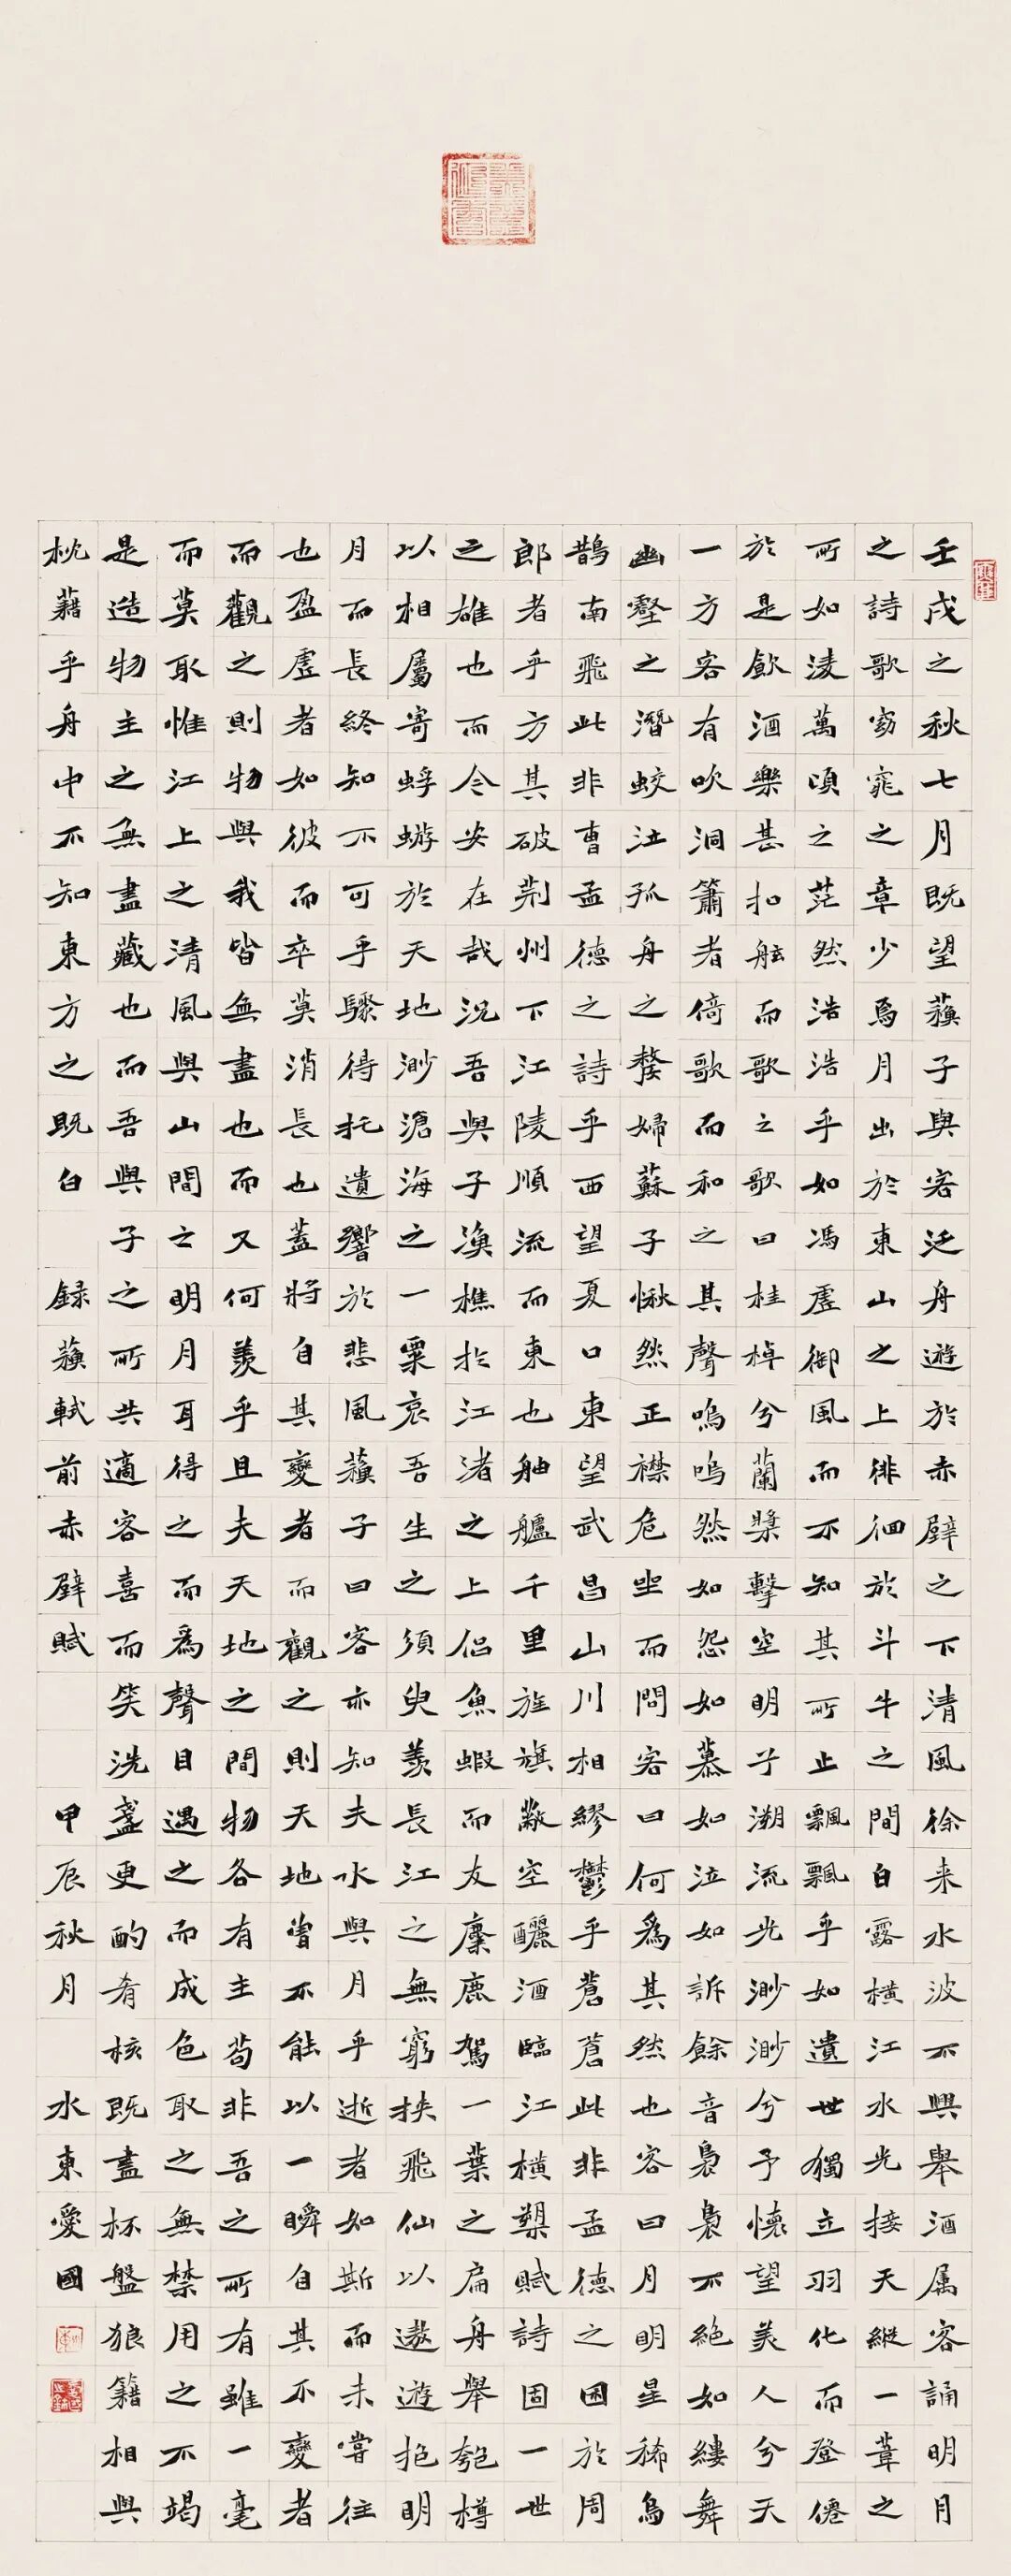 壬戌之秋七月既望蘓子與客泛舟遊於赤壁之下清風徐来水波不興舉酒属客誦明月
之詩歌窈窕之章少焉月出於東山之上徘徊於斗牛之間白露橫江水光接天縱一葦之
所如淩萬頃之茫然浩浩乎如馮虛御風而不知其所止飄飄乎如遺世獨立羽化而登僊
於是飲酒樂甚扣舷而歌之歌曰桂棹兮蘭槳擊空明兮溯流光渺渺兮予懷望美人兮天
一方客有吹洞簫者倚歌而和之其聲嗚嗚然如怨如慕如泣如訴餘音裊裊不絕如縷舞
幽壑之潛蛟泣孤舟之嫠婦蘇子愀然正襟危坐而問客曰何為其然也客曰月明星稀烏
鵲南飛此非曹孟德之詩乎西望夏口東望武昌山川相繆鬱乎蒼蒼此非孟德之困於周
郎者乎方其破荊州下江陵順流而東也舳艫千里旌旗蔽空釃酒臨江橫槊賦詩固一世
之雄也而今安在哉況吾與子漁樵於江渚之上侶魚蝦而友麋鹿駕一葉之扁舟舉匏樽
以相屬寄蜉蝣於天地渺滄海之一粟哀吾生之須臾羨長江之無窮挾飛仙以遨遊抱明
月而長終知不可乎驟得托遺響於悲風蘓子曰客亦知夫水與月乎逝者如斯而未嘗往
也盈虛者如彼而卒莫消長也蓋將自其變者而觀之則天地曾不能以一瞬自其不變者
而觀之則物與我皆無盡也而又何羨乎且夫天地之間物各有主苟非吾之所有雖一毫
而莫取惟江上之清風與山間之明月耳得之而為聲目遇之而成色取之無禁用之不竭
是造物主之無盡藏也而吾與子之所共適客喜而笑洗盞更酌肴核既盡杯盤狼籍相與
枕藉乎舟中不知東方之既白 録蘓軾前赤壁賦 甲辰秋月 水東愛國